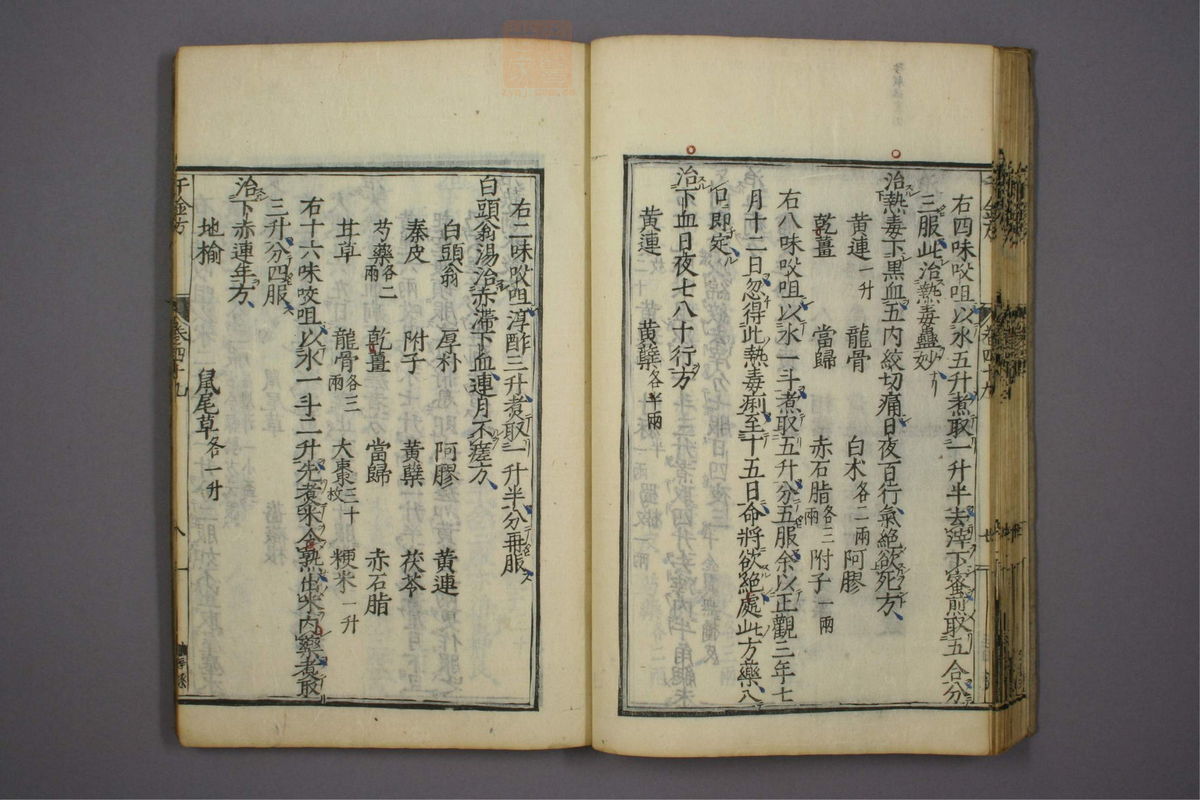 右四味㕮咀以水五升煮取一升半去滓下蜜煎取五合分
三服此治熱毒蠱妙
治熱毒下黑血五內絞切痛日夜百行氣絕欲死方
黃連一升 龍骨 白朮各二兩 阿膠
乾薑 當歸 赤石脂各三兩 附子一兩
右八味㕮咀以水一斗煮取五升分五服余以正觀三年七
月十二日忽得此熱毒痢至十五日命將欲絕處此方藥入
口即定
治下血日夜七八十行方
黃連 黃蘗各半兩
右二味㕮咀淳酢三升煮取一升半分再服
白頭翁湯治赤滯下血連月不瘥方
白頭翁 厚朴 阿膠 黃連
秦皮 附子 黃蘗 茯苓
芍藥各二兩 乾薑 當歸 赤石脂
甘草 龍骨各三兩 大棗三十枚 粳米一升
右十六味㕮咀以水一斗二升先煮米令熟出米內藥煮取
三升分四服
治下赤連年方
地榆 鼠尾草各一升
千金方 卷四十九 八